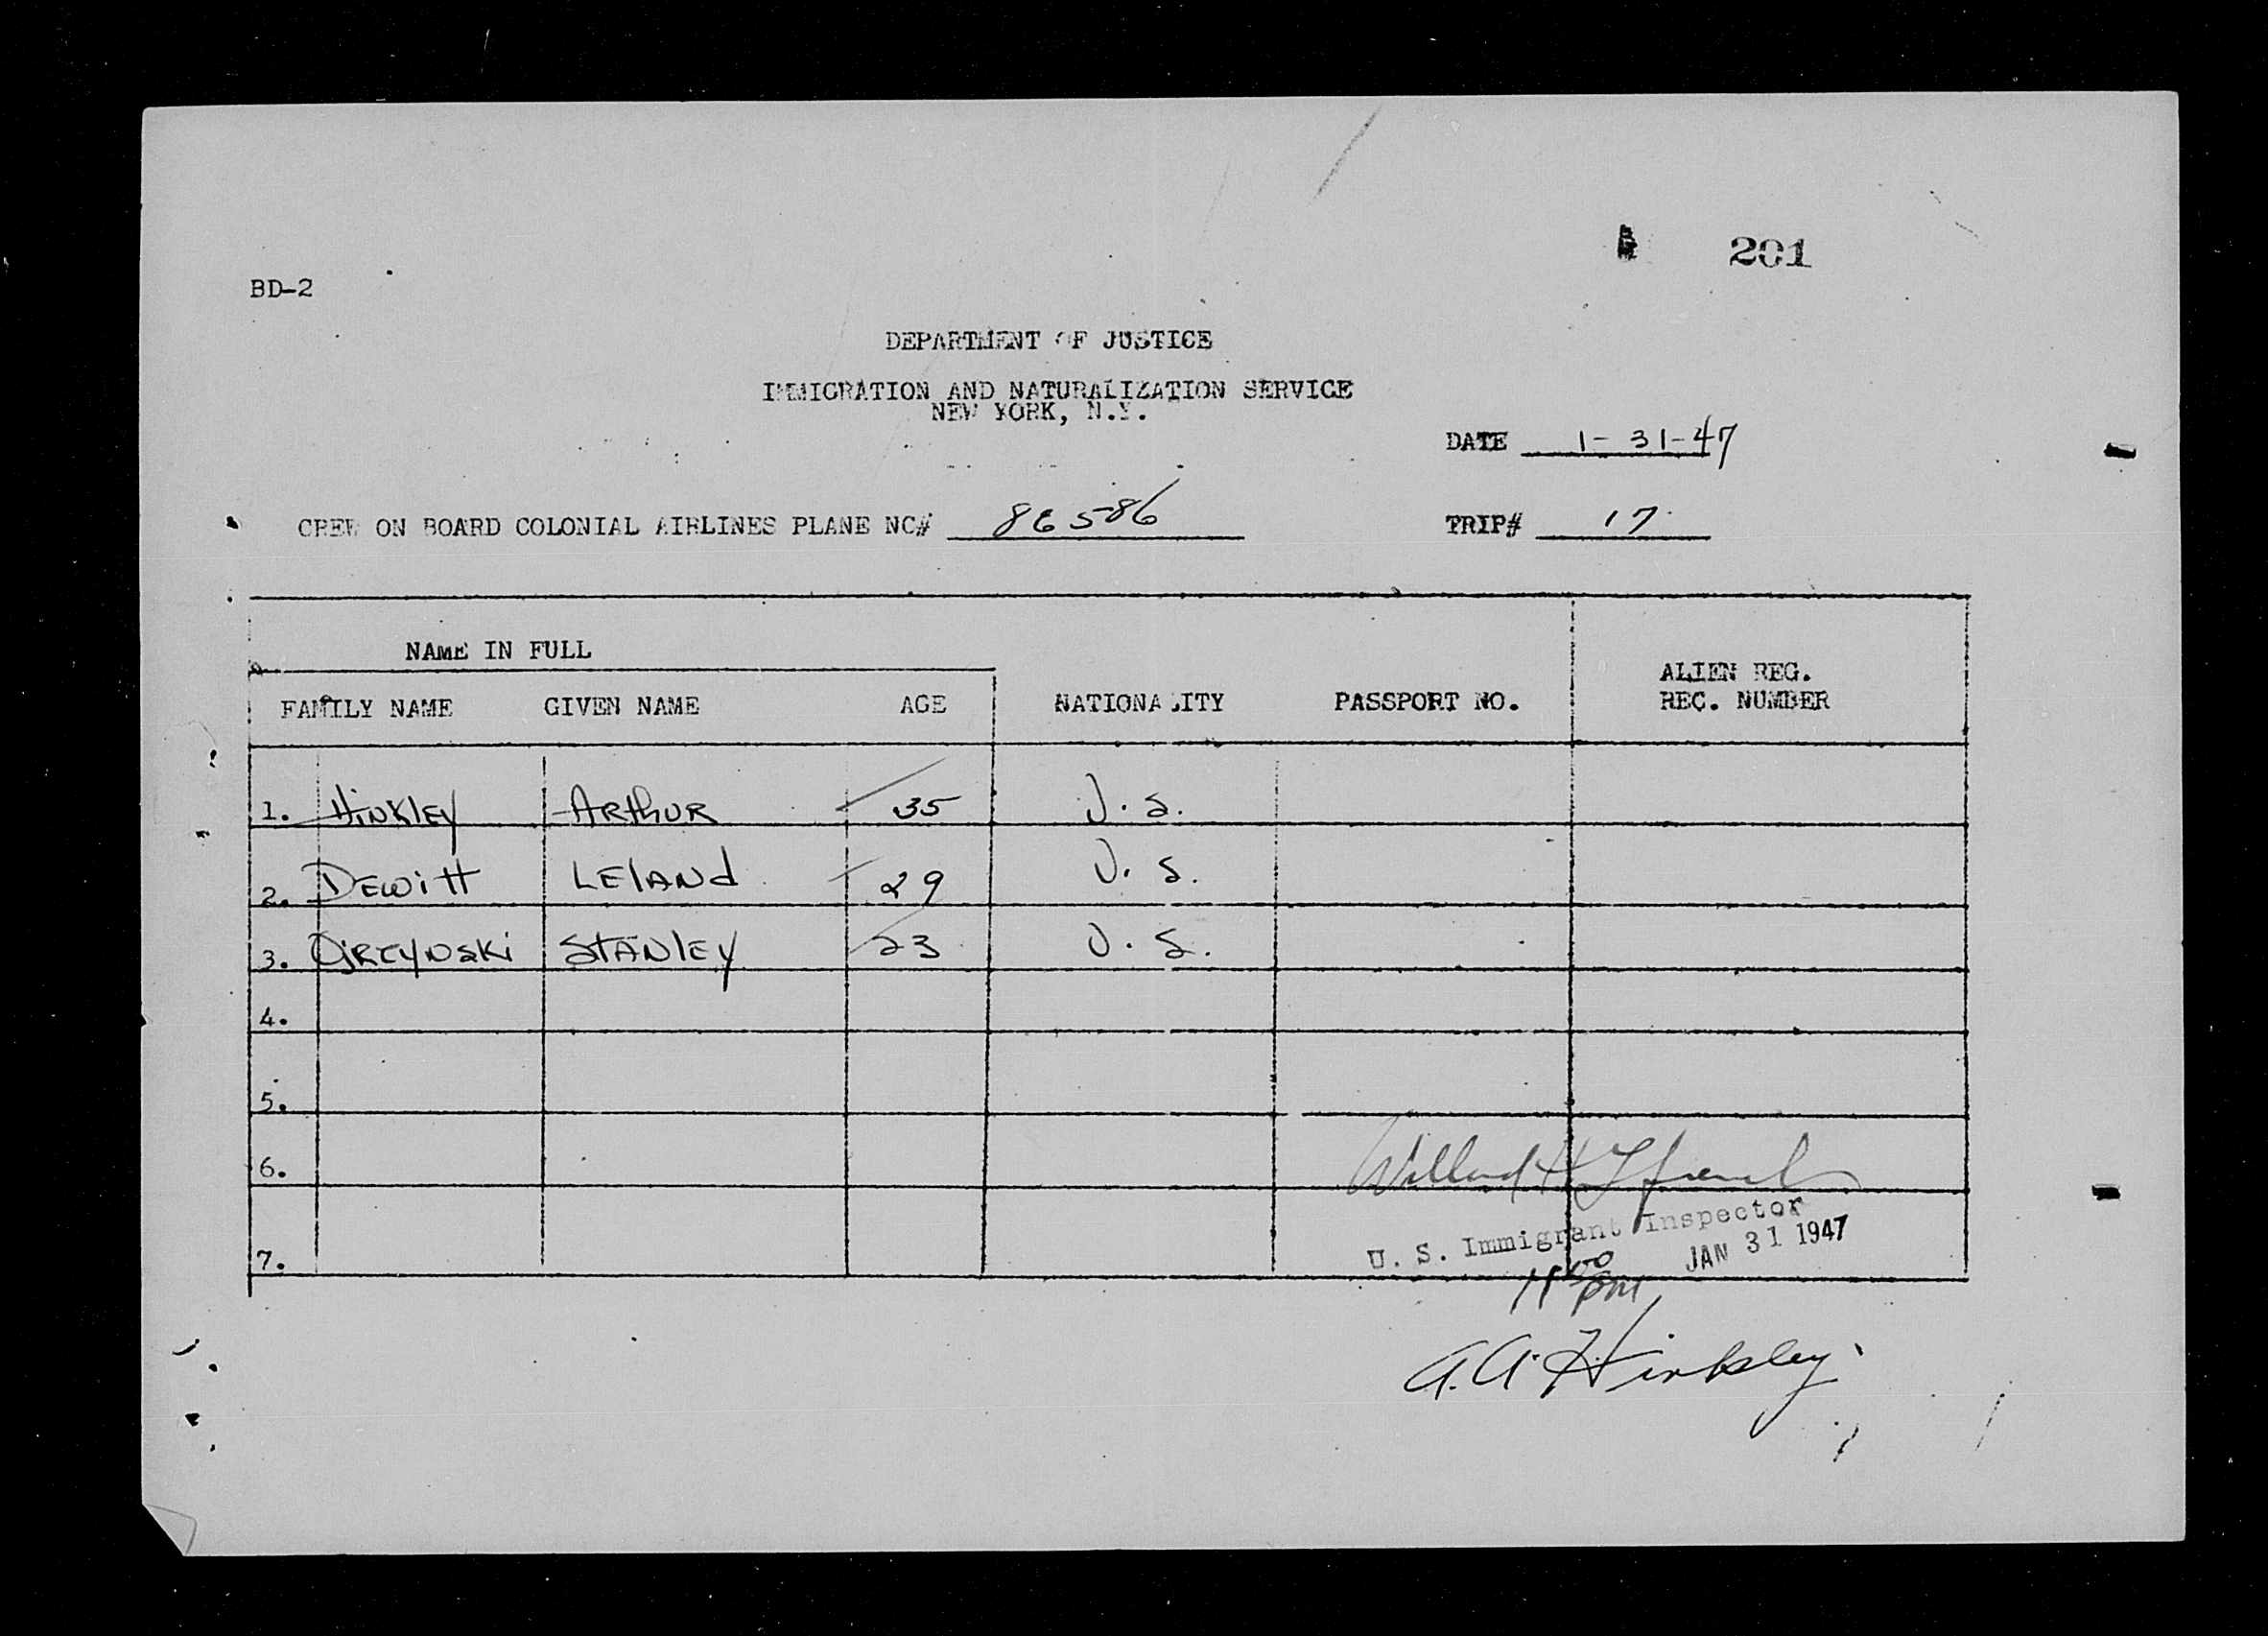 201
BD-2
DEPARTMENT OF JUSTICE
IMMIGRATION AND NATURALIZATION SERVICE
NEW YORK, N.Y.
DATE 1-31-47
CREW ON BOARD COLONIAL AIRLINES PLANE NC# 86586
TRIP# 17
NAME IN FULL
FAMILY NAME GIVEN NAME AGE NATIONALITY PASSPORT NO. ALIEN REG. REC. NUMBER
1. HiNKlEy ARthUR 35 U.S.
2. DEWitt LElANd 29 U.S.
3. StANlEy 23 U.S.
4.
5.
6.
7.
Willard H
U. S. Immigrant Inspector
JAN 31 1947
PM
A.A. Hinkley